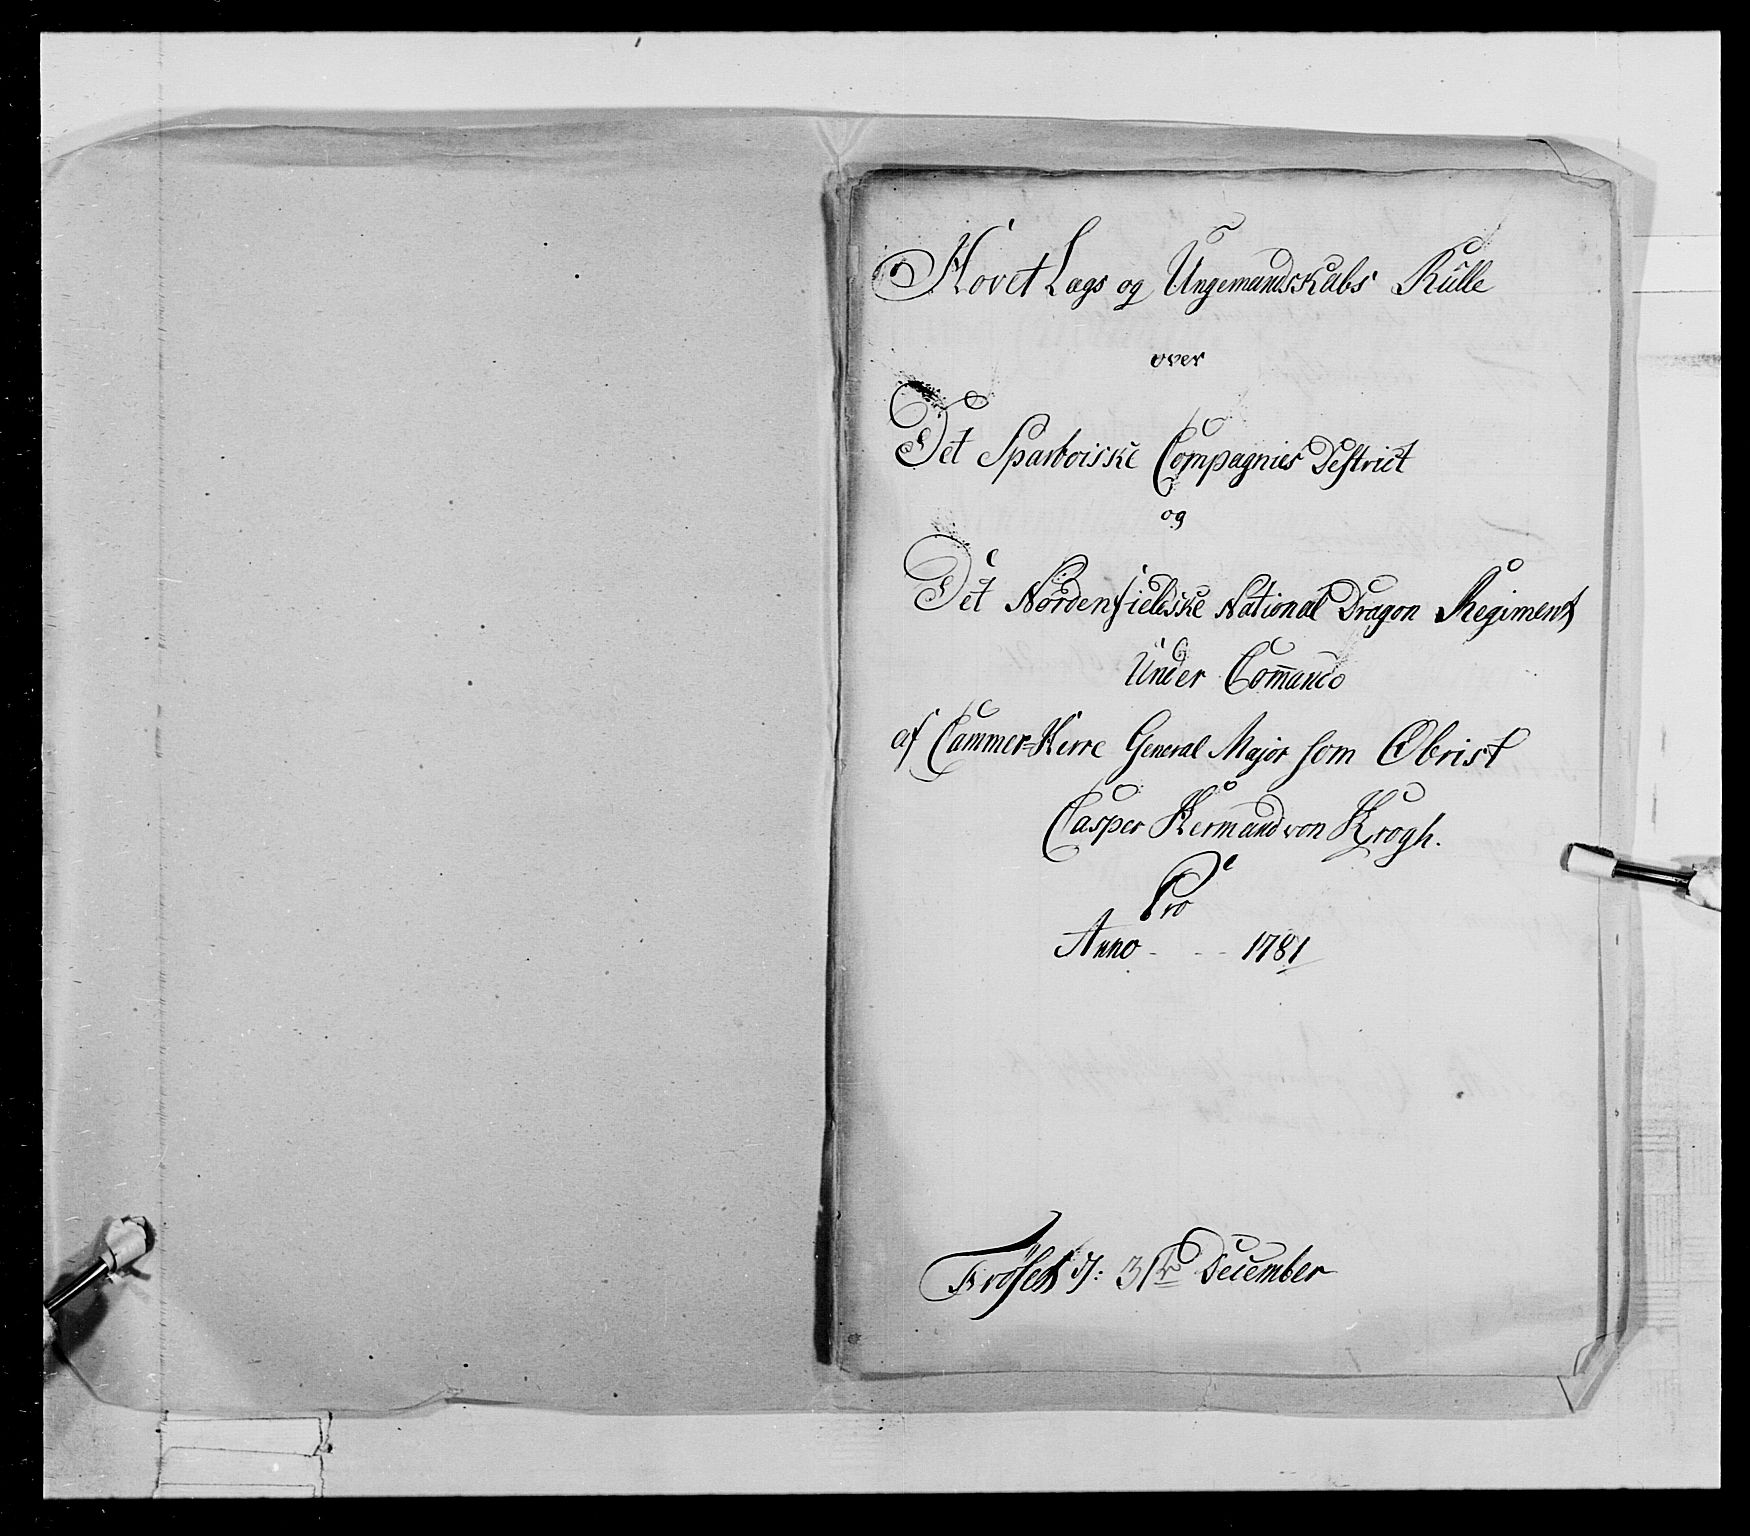 Hovet Lægs og Ungemandskabs Rulle
over
Det Sparboiske Compagnies Destrict
og
Det Nordenfieldske National Dragon Regiment
Under Com̄ando
af Cammer=Herre General Major som Obrist
Casper Hermand von Krogh.
Pro
Anno - - - 1781
Frøset d: 31te December